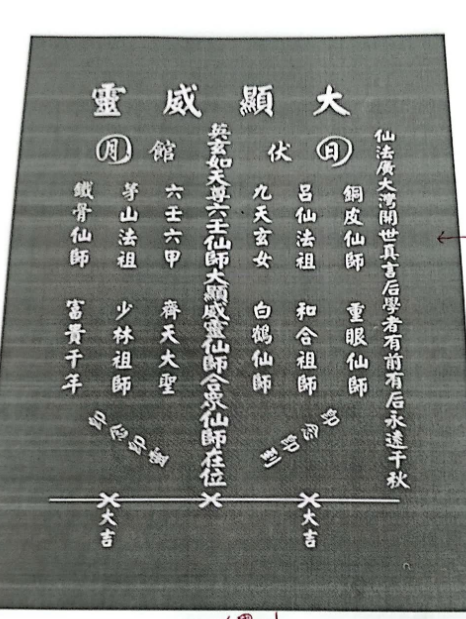 大顯威靈
仙法廣大灣開世真言后學者有前有后永遠千秋
日
伏
館
月
銅皮仙師
重眼仙師
呂仙法祖
和合祖師
九天玄女
白鶴仙師
英玄如天尊六壬仙師大顯威靈仙師合眾仙師在位
六壬六甲
齊天大聖
茅山法祖
少林祖師
鐵骨仙師
富貴千年
即念即到
即念即靈
大吉
大吉